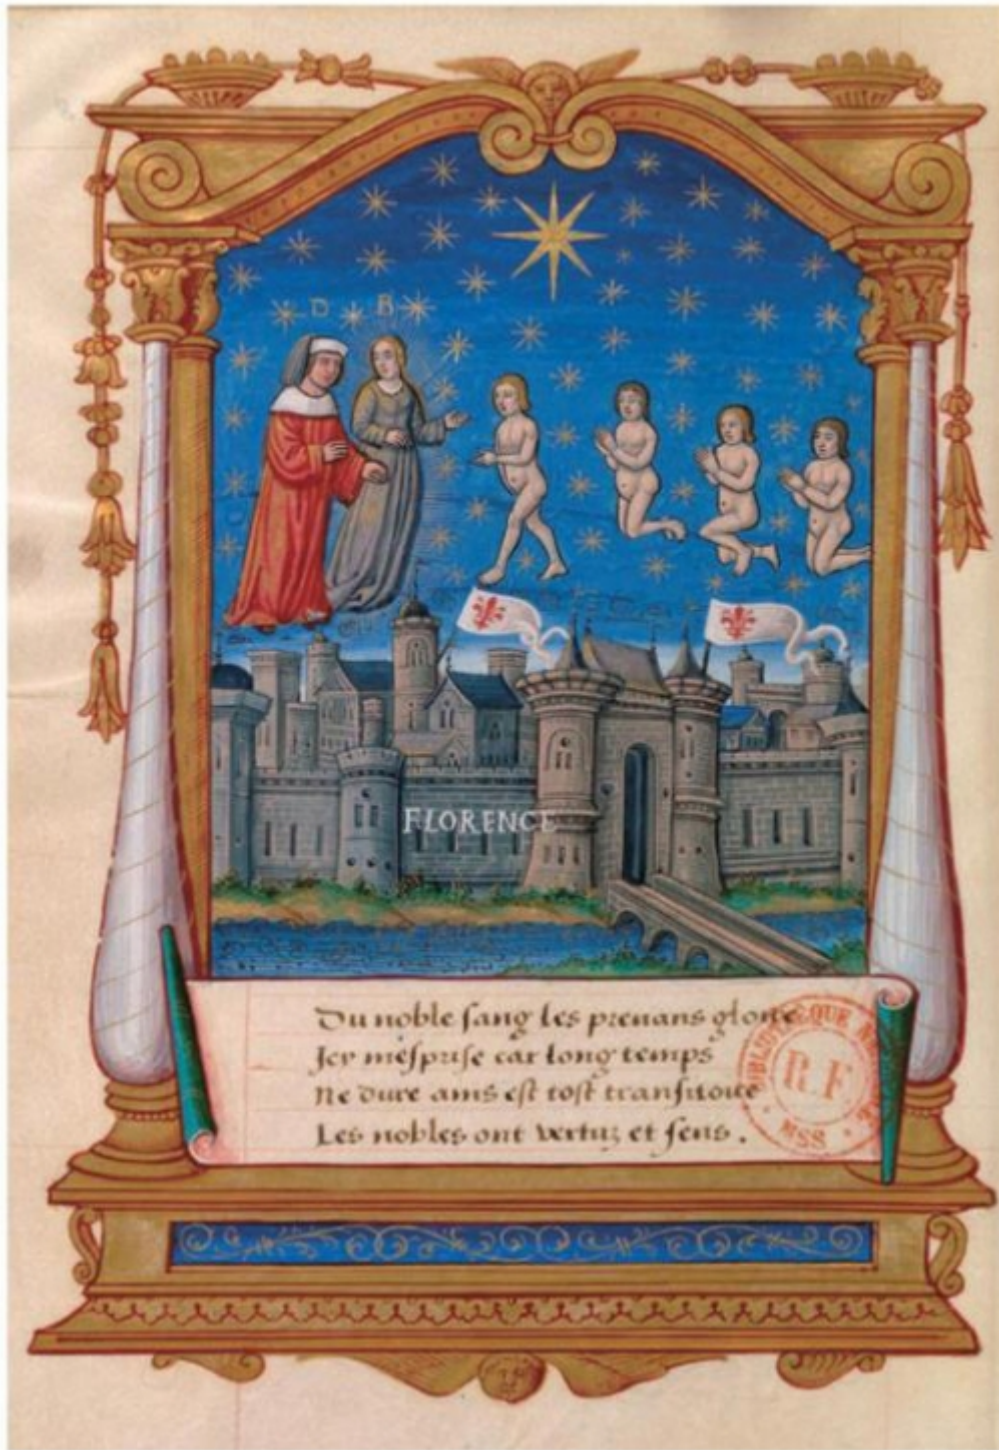 D B
FLORENCE
Du noble sang les prenans gloire
Icy mesprise car long temps
Ne dure ains est tost transitoire
Les nobles ont vertuz et sens.
BIBLIOTHEQUE
R.F
MSS